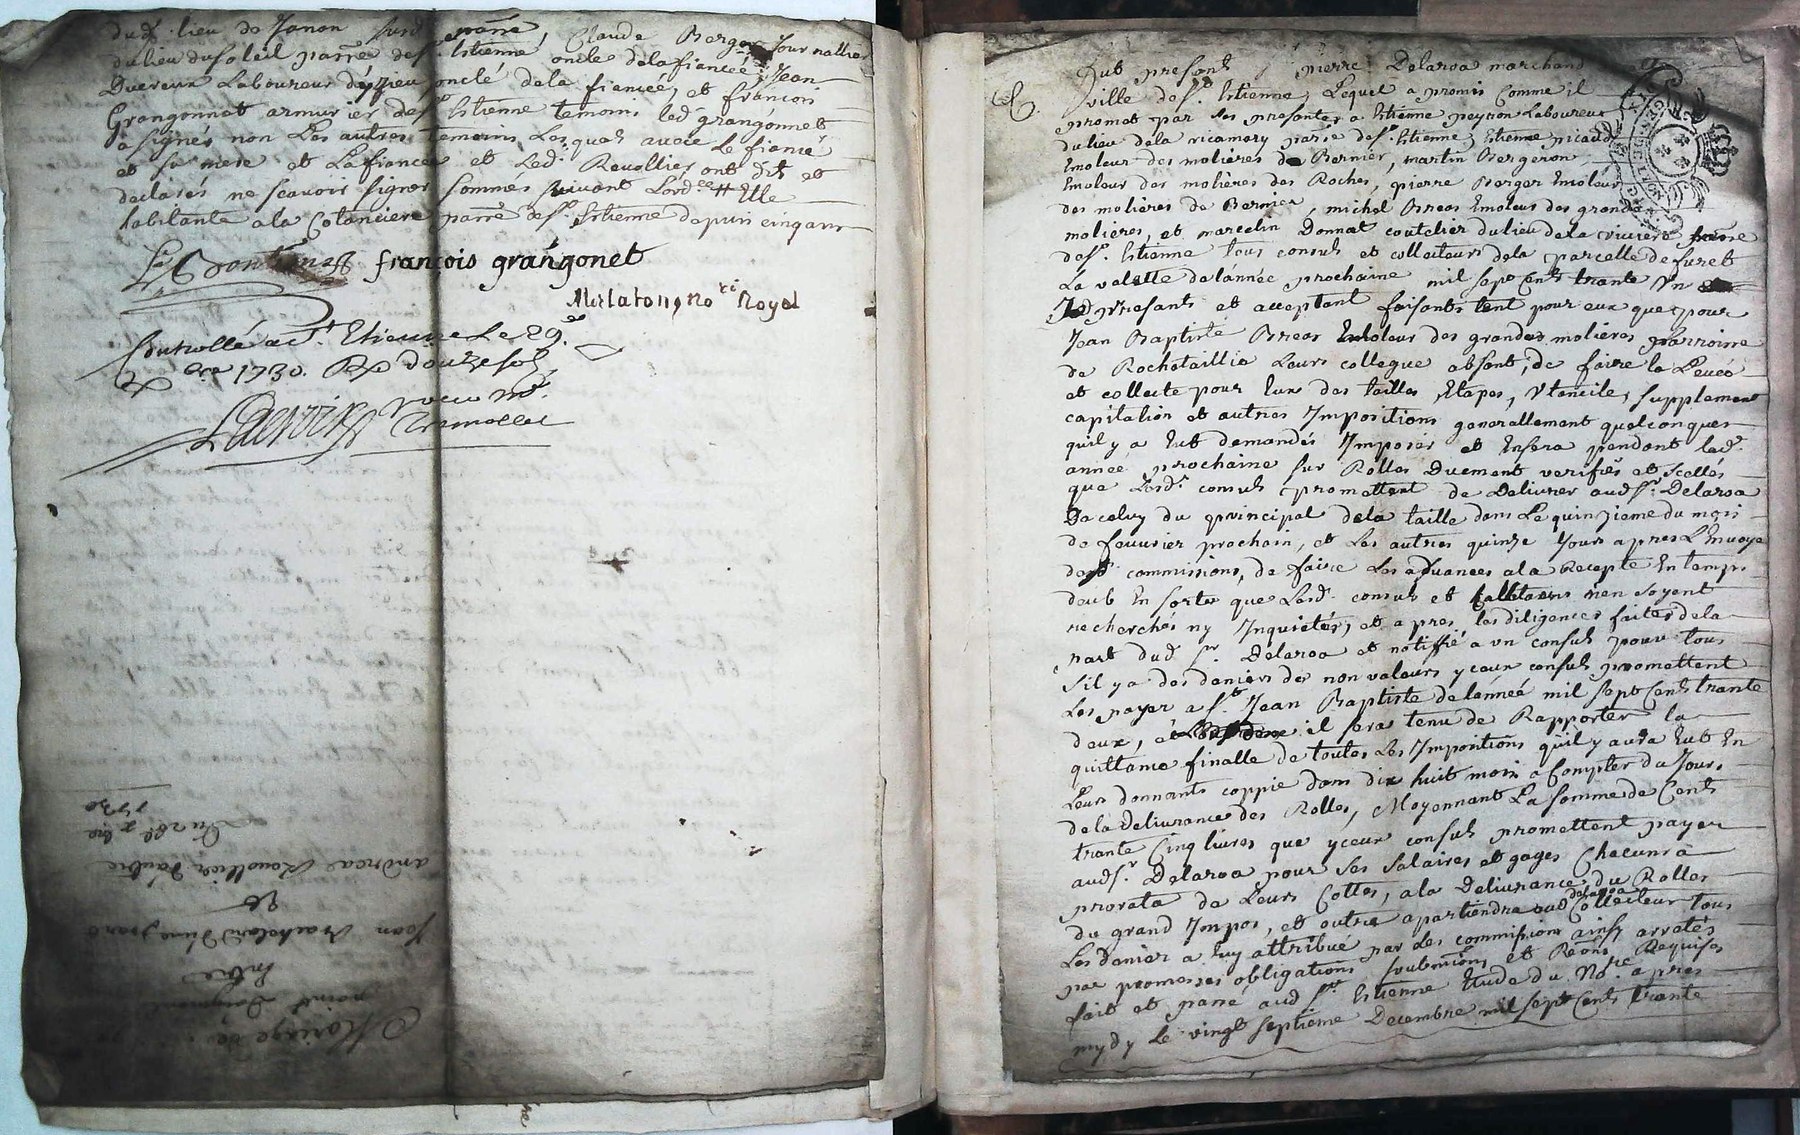 dud. lieu de Janon
du lieu du soleil parre de st. Estienne, Claude Berger Journallier
Duereux Laboureur oncle de la fiancée; Jean
oncle de la fiancée, et françois
Grangonnat armurier de st Estienne temoins led grangonnet
a signés non Les autres temoins Lesquels avec Le fiancé
et sa mere et La fiancée et Led. Revollier ont dit et
declarés ne scavoir signer sommés suivant Lordce # Elle
habitante a la Cotanciere parre de st. Estienne depuis cinq ans
françois grangonet
Mislaton, no re Royal
Controllé a St. Etienne Le 29e
xbre 1730. Rx douze sols
Mariage des
point Daignement
Entre
Jean
Et
andrea Revollier
Du 28e xbre
1730
fut present pierre Delaroa marchand
ville de st. Estienne, Lequel a promis comme il
promet par ses presentes a Estienne peyron Laboureur
du lieu dela ricamary parre de st Estienne, Estienne picaud
Emoleur des molières de Bernier, martin Bergeron,
Emoleur des molières des Roches, pierre Berger Emoleur
des molières de Bernier, michel Breas Emoleur des grandes
molieres, et marcelin Donnat coutelier du lieu dela riviere parre
de st. Estienne tous consuls et collecteurs dela parcelle de furet
La valette de lannée prochaine mil sept Cents trante Un
Jcy presants et acceptant faisants tant pour eux que pour
Jean Baptiste Breas Emoleur des grandes molieres parroisse
de Rochetaillia Leurs collegue absent, de faire la Leveé
et collecte pour Eux des tailles Etapes, Vtancile, supplement
capitation et autres Jmpositions generallement quelconques
quil y a Eut demandés Jmposés et Enfera pendant lad.
année prochaine sur Rolles Duement verifiés et scellés
que Lesd. consuls promettent de Delivrer aud sr. Delaroa
Da celuy du principal dela taille dans Le quinzieme du mois
de feuvrier prochain, et Les autres quinze Jours apres L'Envoye
desd commissions, de faire Les advances ala Recepte En temps
deub En sorte que Lesd. consuls et collecteurs nen soyent
recherchés ny Jnquiétés, et apres les diligences faites dela
part dud sr. Delaroa et notiffié a vn consuls pour tous
sil y a des deniers de non valeurs yceux consuls promettent
Les payer a st. Jean Baptiste de lannéé mil sept Cents trante
deux, et il sera tenu de Rapporter la
quittance finalle de toutes Les Jmpositions quil y aura Eut En
Leurs donnants coppie dans dix huit mois a Compter du Jour
de la Delivrance des Rolles, Moyennant La somme de Cents
trante Cinq livres que yceux consuls promettent payer
aud sr. Delaroa pour ses salaires et gages Chacun a
prorata de Leurs Cottes, ala Delivrance du Rolles
du grand Jmpos, et outre apartiendra aud delaroa Collecteur tous
Les denier a luy attribué par des commissions ainsy arretés
par promesses obligations soubmions et Renons Requises
fait et parré aud st Estienne Etude du Nore. apres
mydy Le vingt septieme Decembre mil sept Cents trante